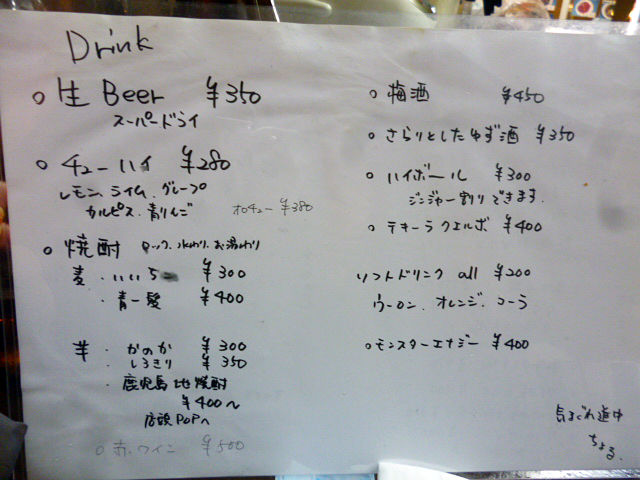 Drink
○ 生 Beer ¥350
スーパードライ
○ チューハイ ¥280
レモン、ライム、グレープ
カルピス、青りんご
オロチュー ¥380
○ 焼酎 ロック、水わり、お湯わり
麦 ・いいちこ ¥300
・青一髪 ¥400
芋 ・かのか ¥300
・しろきり ¥350
・鹿児島地焼酎
¥400〜
店頭POPへ
○ 赤ワイン ¥500
○ 梅酒 ¥450
○ さらりとしたゆず酒 ¥350
○ ハイボール ¥300
ジンジャー割りできます。
○ テキーラクエルボ ¥400
ソフトドリンク all ¥200
ウーロン、オレンジ、コーラ
○ モンスターエナジー ¥400
気まぐれ道中
ちょる